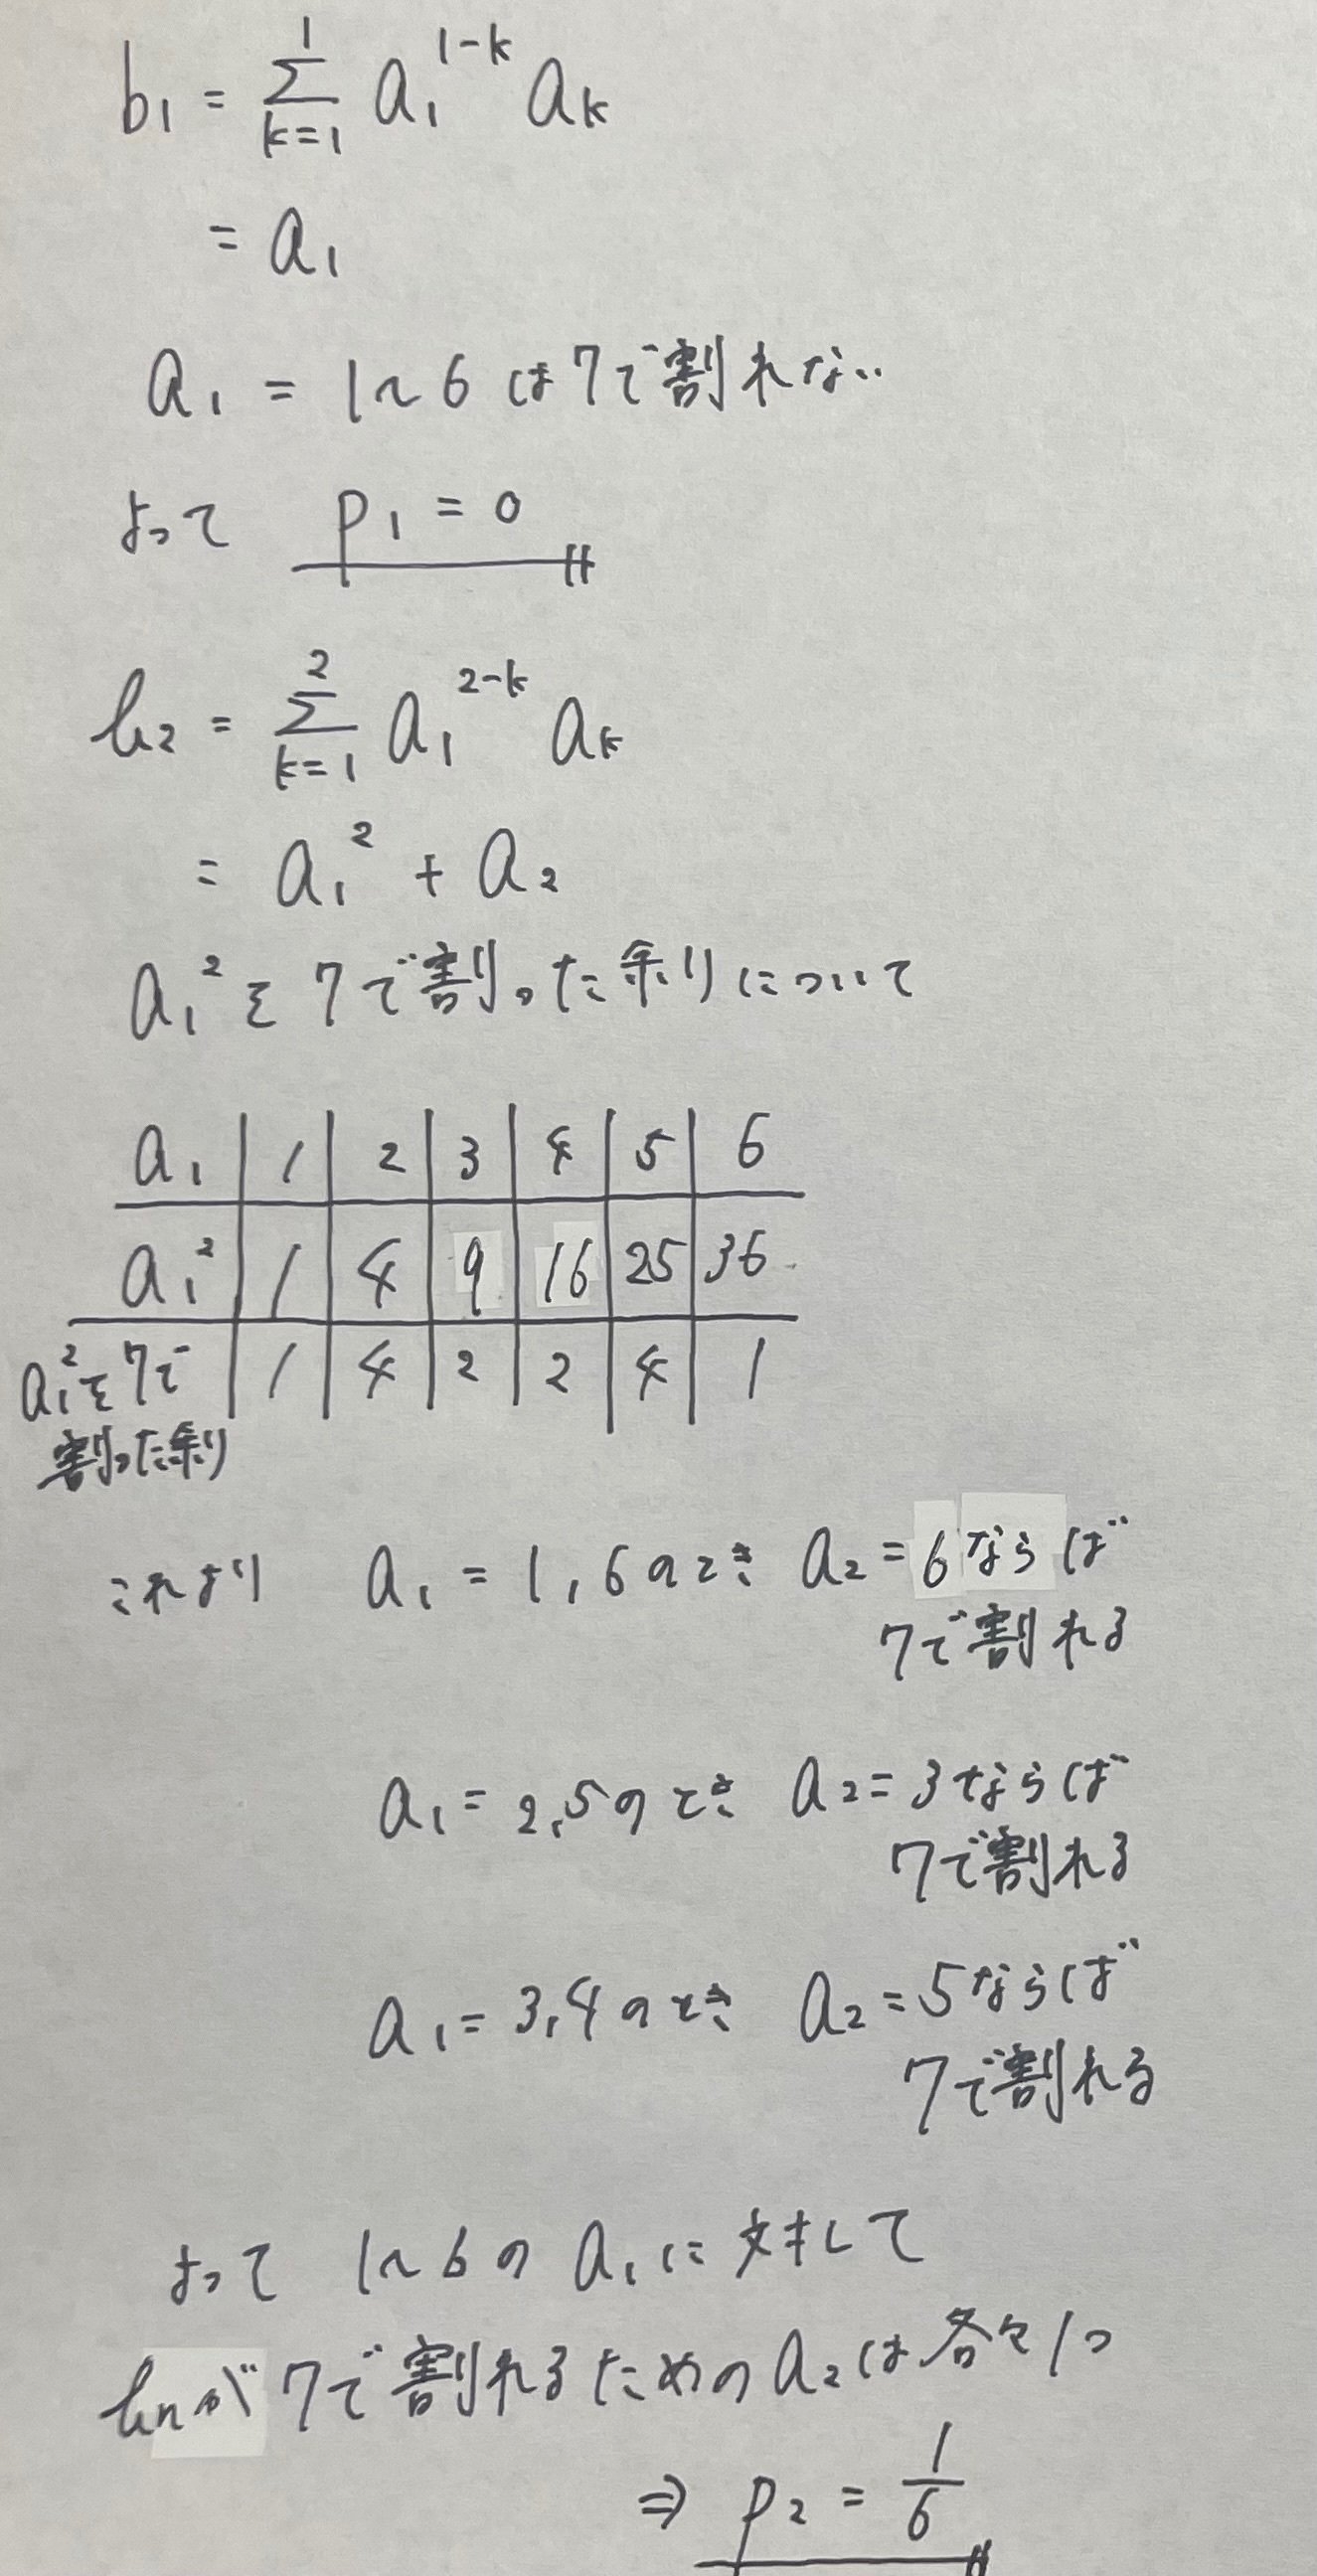 b₁ = Σ_{k=1}^{1} a₁^{1-k} a_k
= a₁
a₁ = 1~6 は7で割れない
よって P₁ = 0
b₂ = Σ_{k=1}^{2} a₁^{2-k} a_k
= a₁² + a₂
a₁²を7で割った余りについて
a₁ | 1 | 2 | 3 | 4 | 5 | 6
a₁² | 1 | 4 | 9 | 16 | 25 | 36
a₁²を7で | 1 | 4 | 2 | 2 | 4 | 1
割った余り
これより a₁ = 1, 6のとき a₂ = 6ならば
7で割れる
a₁ = 2,5のとき a₂ = 3ならば
7で割れる
a₁ = 3,4のとき a₂ = 5ならば
7で割れる
よって 1~6の a₁に対して
bnが7で割れるためのa₂は各々1つ
⇒ P₂ = 1/6